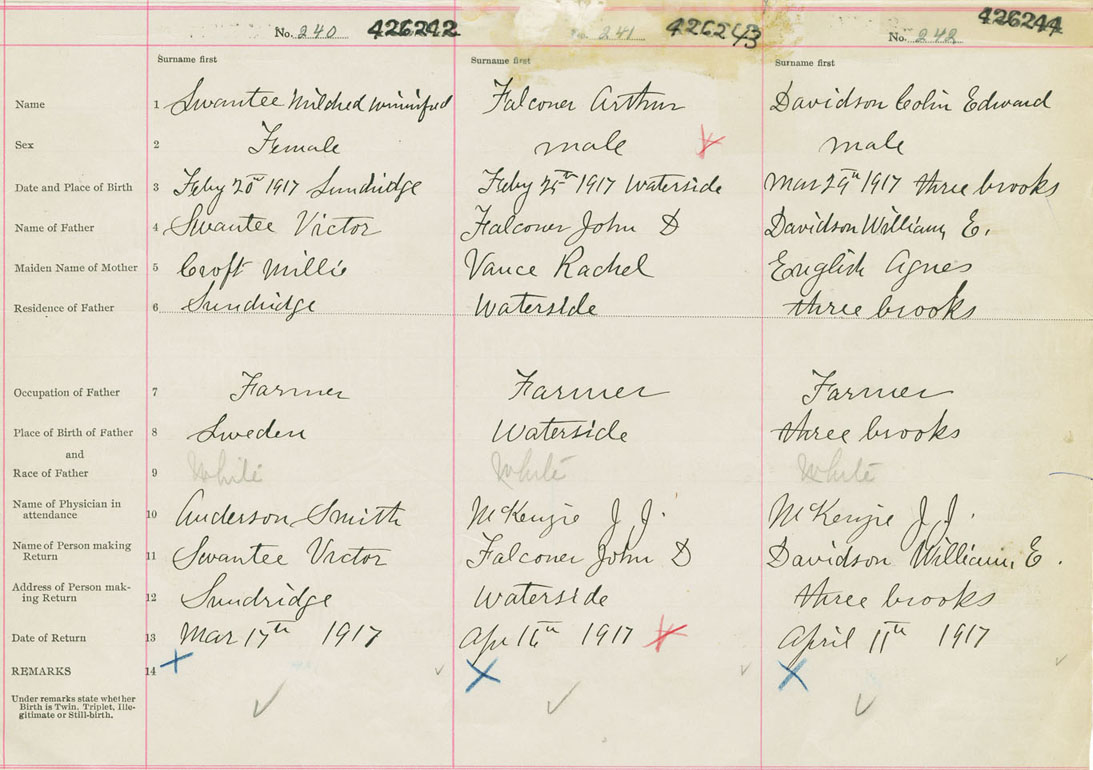 No. 240 426242 No. 241 426243 No. 242 426244
Surname first Surname first Surname first
Name 1 Swantee Mildred Winnifred Falconer Arthur Davidson Colin Edward
Sex 2 Female male male
Date and Place of Birth 3 Feby 20th 1917 Sundridge Feby 25th 1917 Waterside Mar 29th 1917 three brooks
Name of Father 4 Swantee Victor Falconer John D Davidson William, E.
Maiden Name of Mother 5 Croft Millie Vance Rachel English Agnes
Residence of Father 6 Sundridge Waterside three brooks
Occupation of Father 7 Farmer Farmer Farmer
Place of Birth of Father 8 Sweden Waterside three brooks
and
Race of Father 9 White White White
Name of Physician in
attendance 10 Anderson Smith McKenzie J J. McKenzie J J.
Name of Person making
Return 11 Swantee Victor Falconer John D Davidson William, E.
Address of Person mak-
ing Return 12 Sundridge Waterside three brooks
Date of Return 13 Mar 17th 1917 Apr 16th 1917 April 11th 1917
REMARKS 14
Under remarks state whether
Birth is Twin, Triplet, Ille-
gitimate or Still-birth.